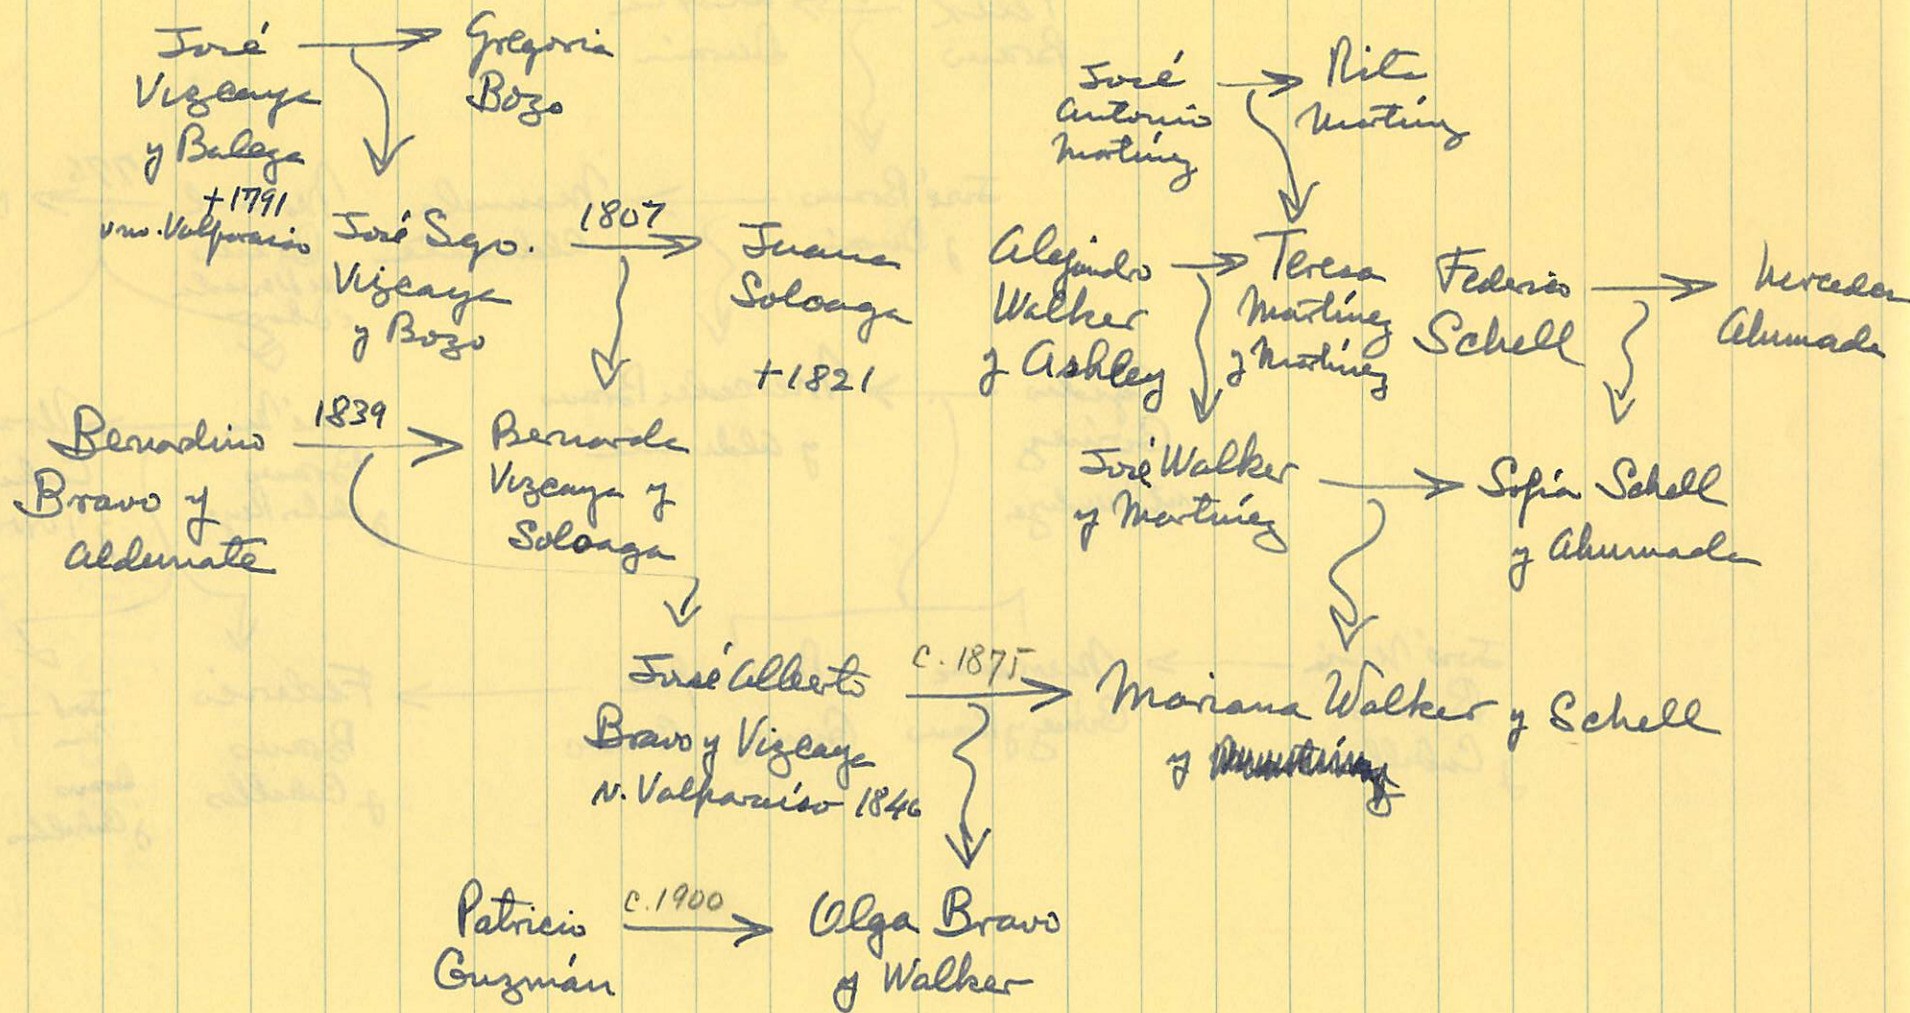 José
Vizcaya
y Balega
+1791
vno. Valparaíso
Gregoria
Bozo
José
Antonio
Martínez
Rita
Martínez
José Sgo.
Vizcaya
y Bozo
1807
Juana
Soloaga
+1821
Alejandro
Walker
y Ashley
Teresa
Martínez
y Martínez
Federico
Schell
Mercedes
Ahumada
Bernardino
Bravo y
Aldunate
1839
Bernarda
Vizcaya y
Soloaga
José Walker
y Martínez
Sofía Schell
y Ahumada
José Alberto
Bravo y Vizcaya
n. Valparaíso 1846
c. 1875
Mariana Walker y Schell
y
Patricio
Guzmán
c. 1900
Olga Bravo
y Walker